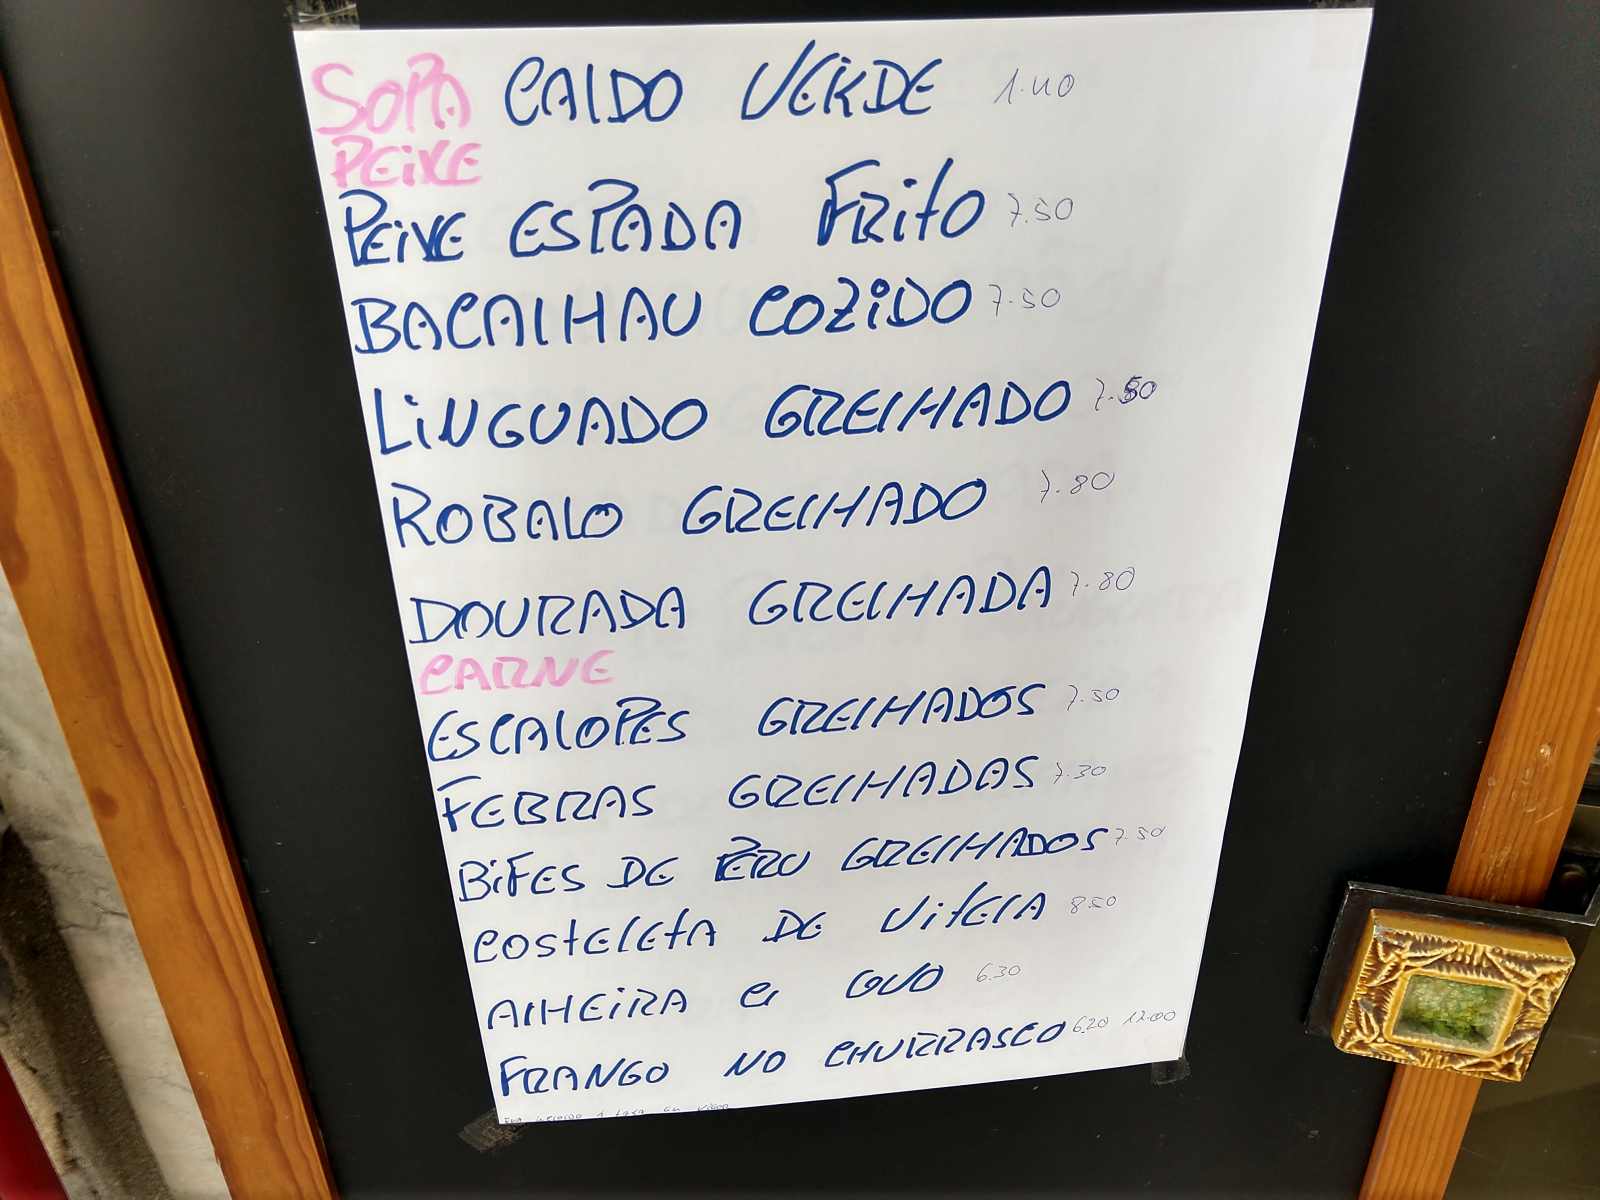 SOPA CALDO VERDE 1.40
PEIXE
PEIXE ESPADA FRITO 7.50
BACALHAU COZIDO 7.50
LINGUADO GRELHADO 7.80
ROBALO GRELHADO 7.80
DOURADA GRELHADA 7.80
CARNE
ESCALOPES GRELHADOS 7.50
FEBRAS GRELHADAS 7.30
BIFES DE PERU GRELHADOS 7.50
COSTELETA DE VITELA 8.50
ALHEIRA C/ OVO 6.30
FRANGO NO CHURRASCO 6.20 12.00
IVA INCLUIDO A TAXA EM VIGOR